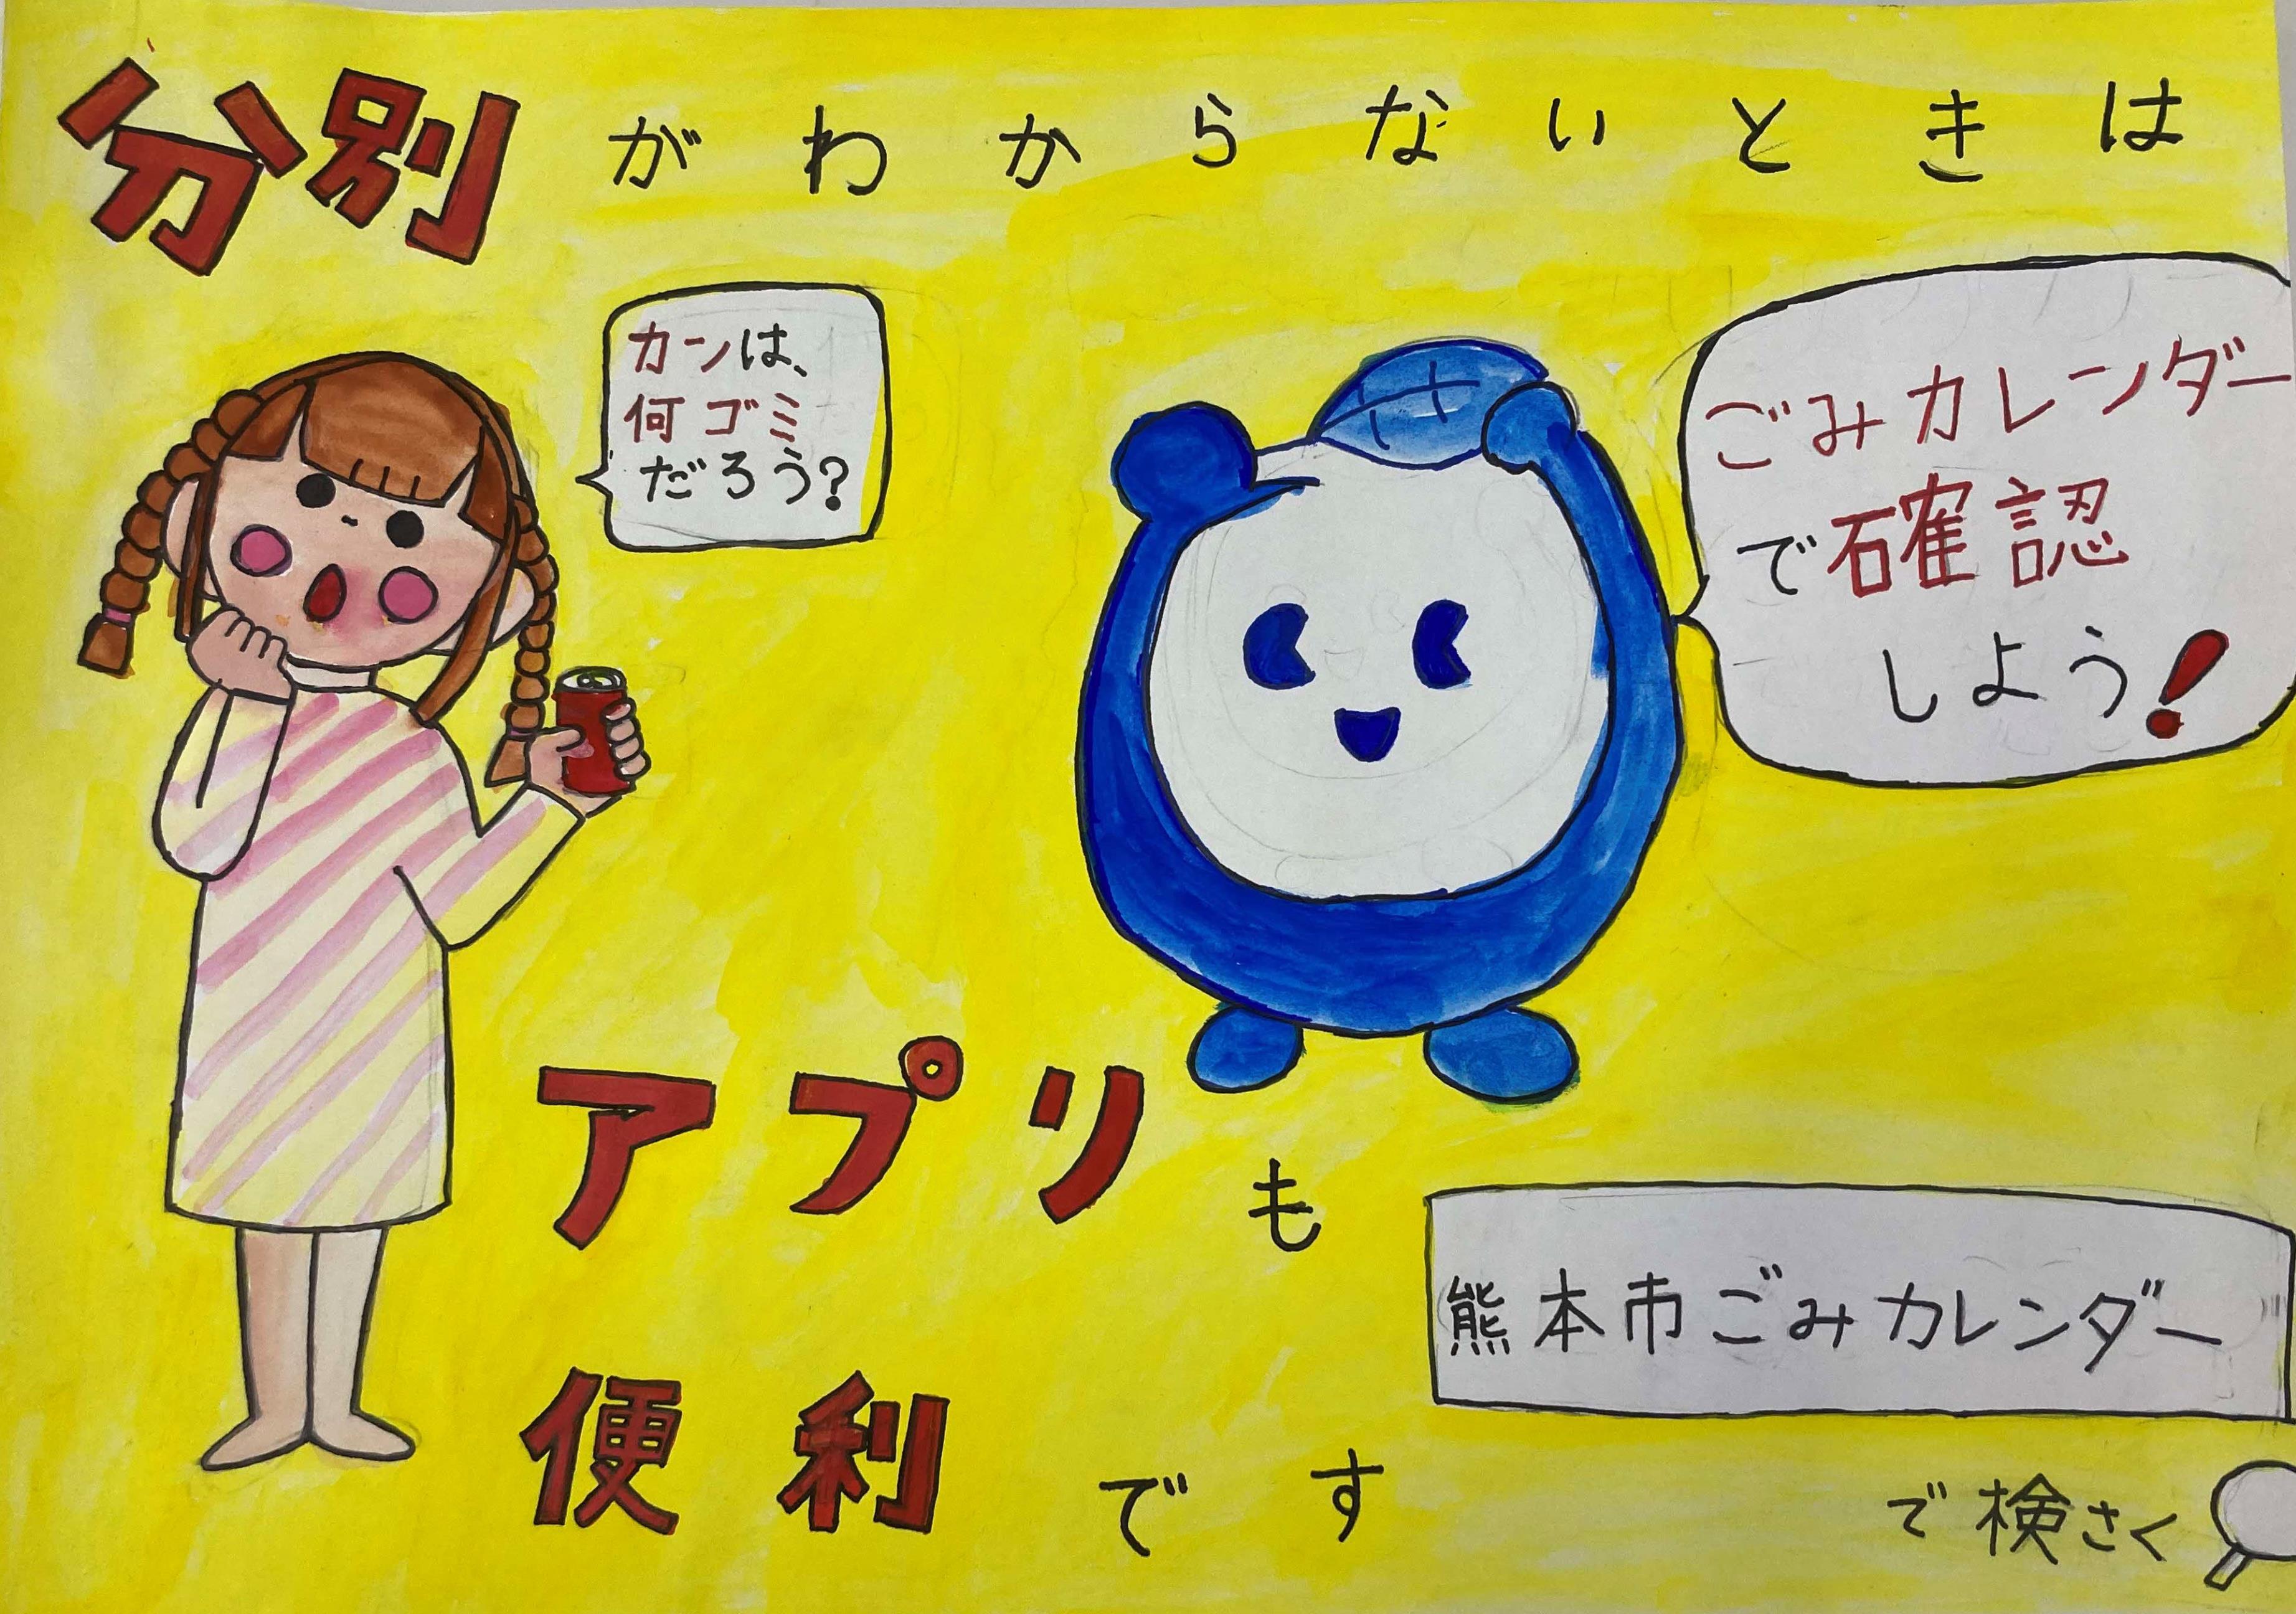 分別がわからないときは
カンは、
何ゴミ
だろう?
ごみカレンダー
で確認
しよう!
アプリも
便利です
熊本市ごみカレンダー
で検さく